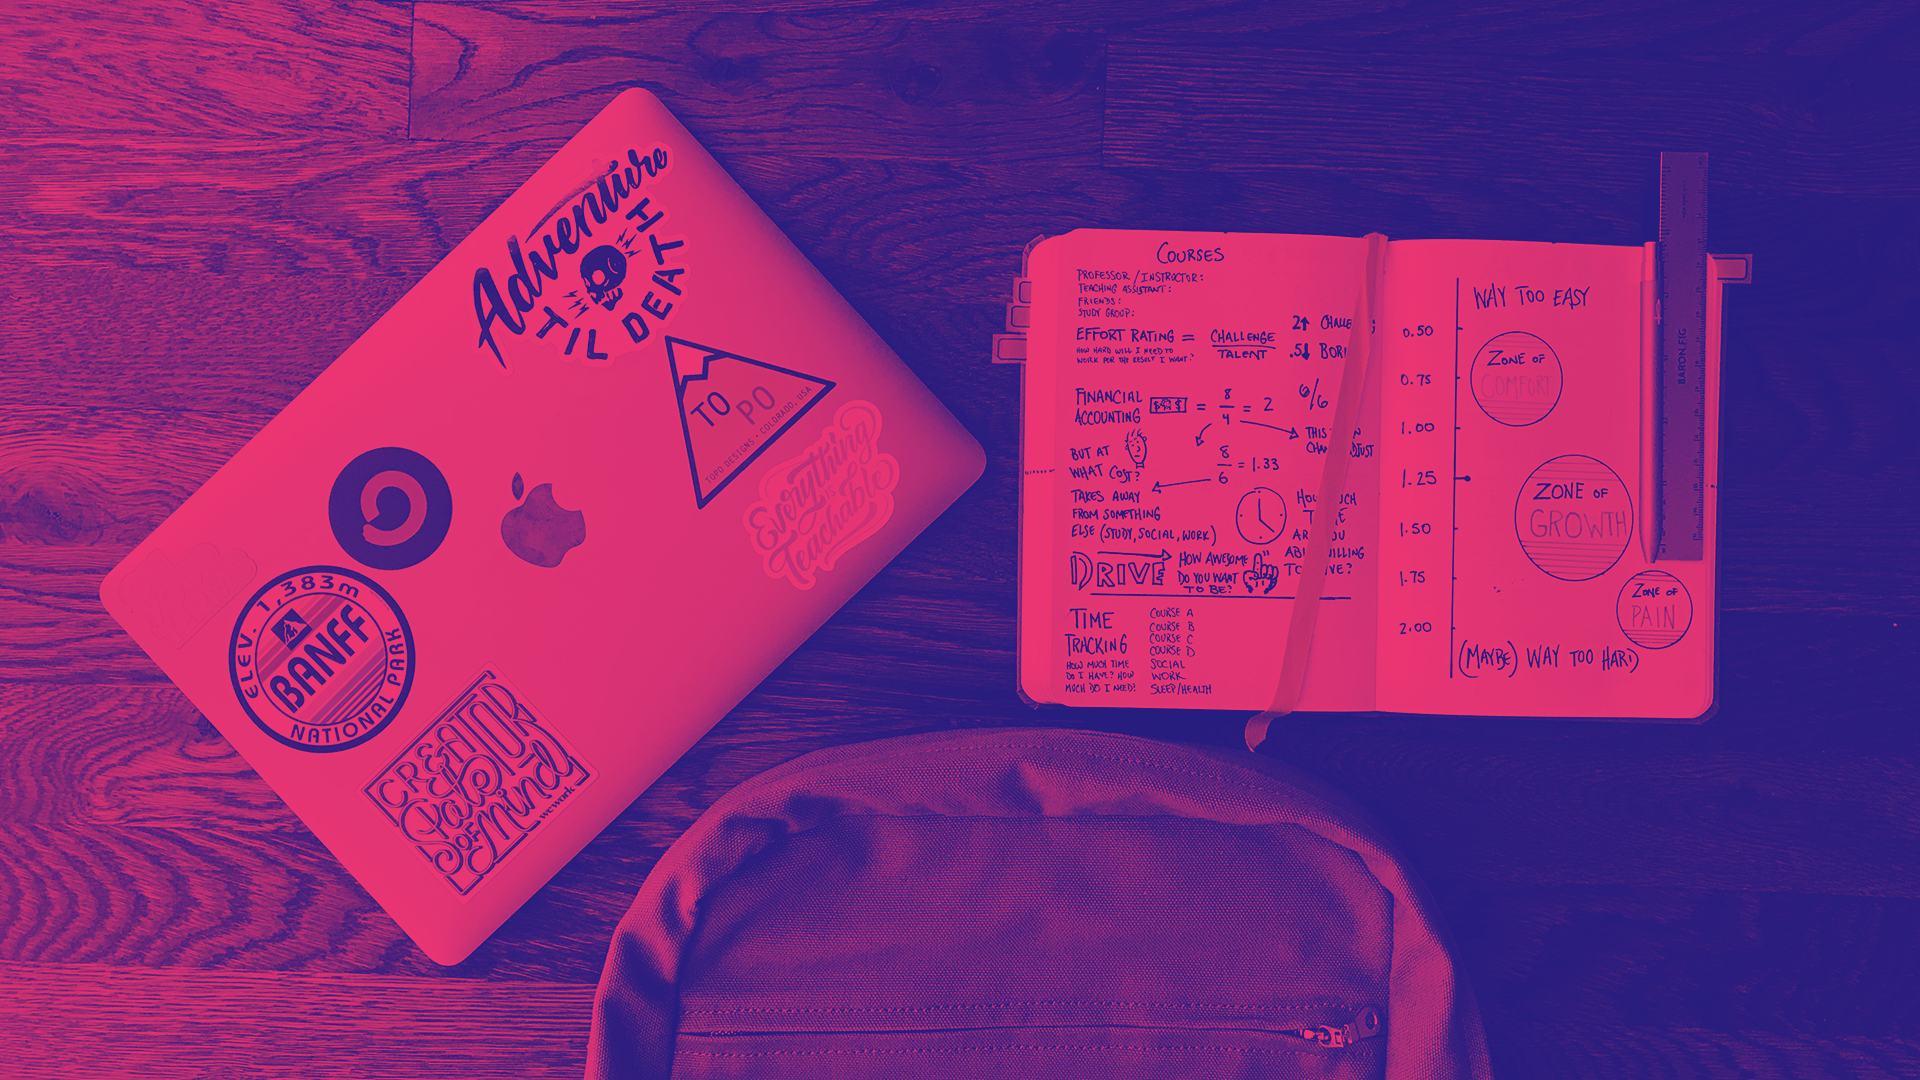 Adventure
TIL DEATH
TO PO
TOPO DESIGNS • COLORADO, USA
Everything
IS
Teachable
ELEV. 1,383m
BANFF
NATIONAL PARK
CREATOR
State
OF Mind
wework
COURSES
PROFESSOR / INSTRUCTOR:
TEACHING ASSISTANT:
FRIENDS:
STUDY GROUP:
EFFORT RATING = CHALLENGE
TALENT
HOW HARD WILL I NEED TO
WORK FOR THE RESULT I WANT?
2↑
.5↓
FINANCIAL
ACCOUNTING [$$$] = 8/4 = 2
6/6
THIS
BUT AT
WHAT COST?
8/6 = 1.33
TAKES AWAY
FROM SOMETHING
ELSE (STUDY, SOCIAL, WORK)
DRIVE
HOW AWESOME
DO YOU WANT
TO BE?
TIME
TRACKING
HOW MUCH TIME
DO I HAVE? HOW
MUCH DO I NEED?
COURSE A
COURSE B
COURSE C
COURSE D
SOCIAL
WORK
SLEEP/HEALTH
WAY TOO EASY
0.50
ZONE OF
COMFORT
0.75
1.00
1.25
ZONE OF
GROWTH
1.50
1.75
ZONE OF
PAIN
2.00
(MAYBE) WAY TOO HARD
BARON FIG